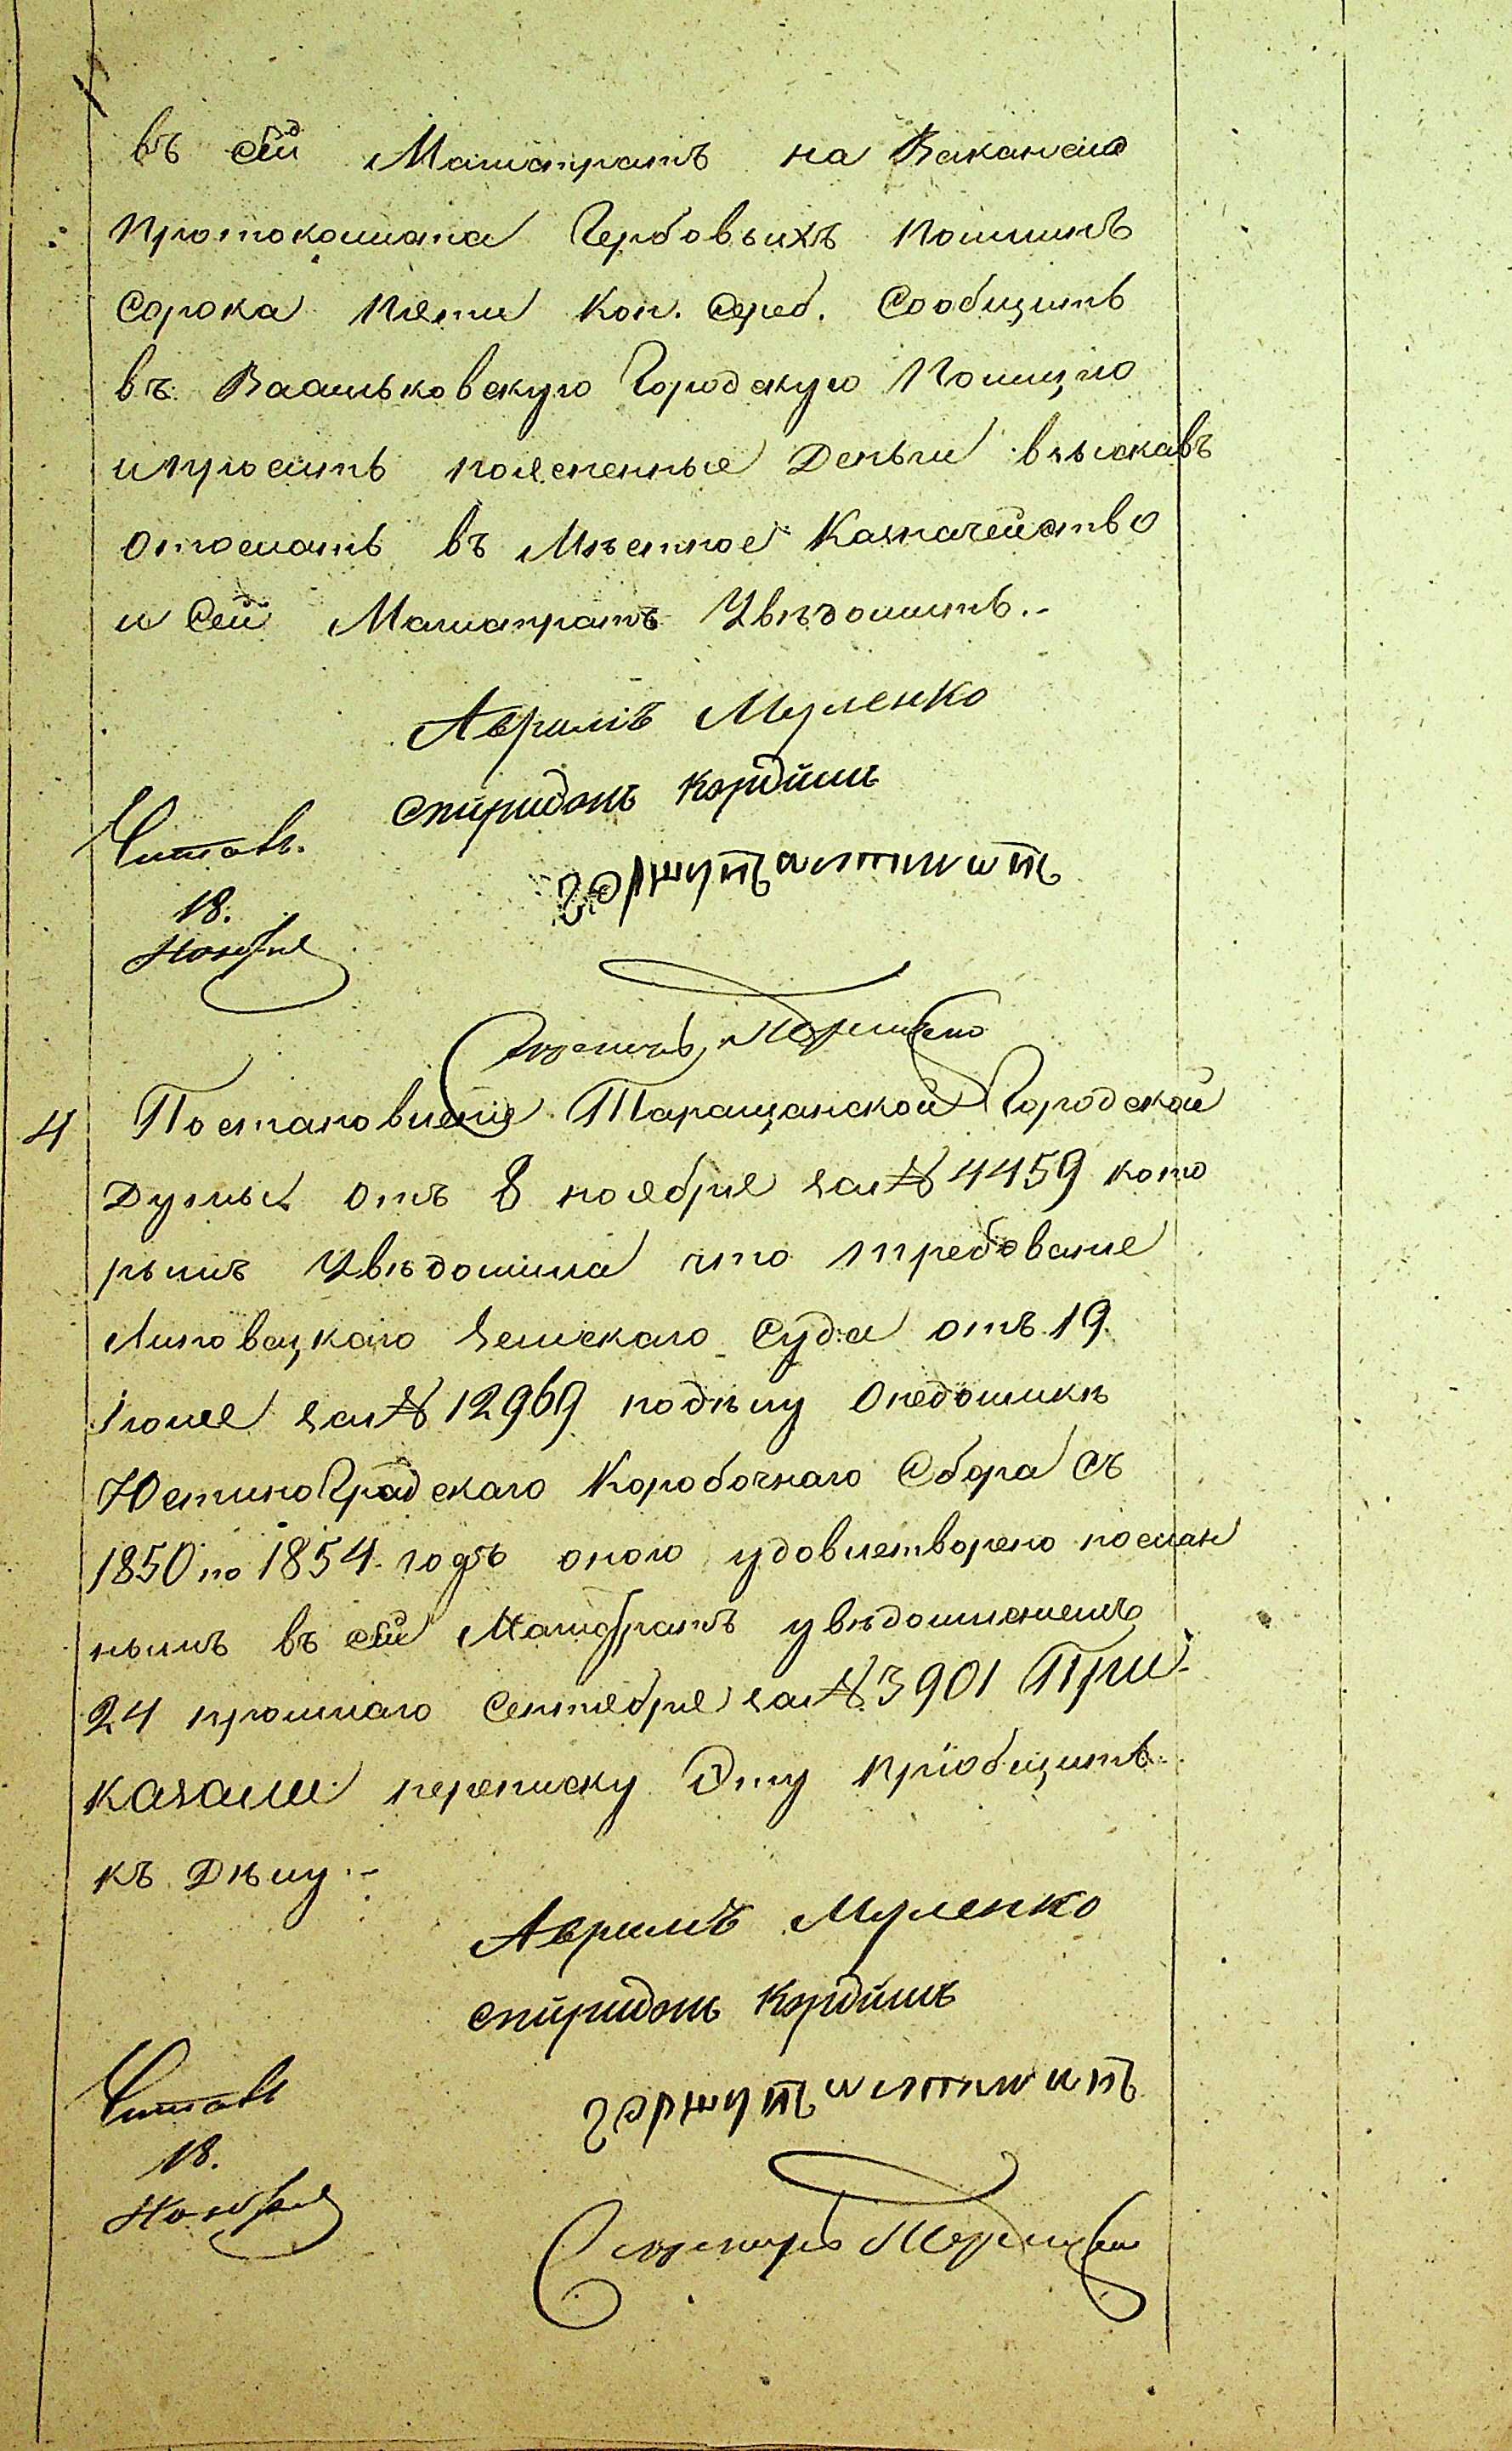 въ сей Магистратъ на Вакансію
Протоколиста Гербовыхъ Пошлинъ
Сорока Пяти Коп. Сереб. Сообщить
въ Васильковскую Городскую Полицію
и просить поясненные Деньги взыскавъ
отослать въ Мѣстное Казначейство
и Сей Магистратъ Увѣдомить.-
Аврамъ Муленко
спиридонъ Кордишъ
Читалъ.
18.
Ноября
Секретарь
4 Постановленіе Таращанской Городской
Думы отъ 8 ноября за № 4459 кото
рымъ Увѣдомила что требованіе
Липовецкаго Земскаго Суда отъ 19
Іюня за № 12969 подѣлу Онедоимкѣ
Юстинградскаго Коробочнаго Сбора съ
1850 по 1854 годъ оного удовлетворено послан
нымъ въ сей Магистратъ увѣдомленіемъ
24 прошлаго Сентября за № 3901 При-
казали переписку Эту пріобщить
къ Дѣлу.-
Аврамъ Муленко
спиридонъ Кордишъ
Читалъ
18.
Ноября
Секретарь